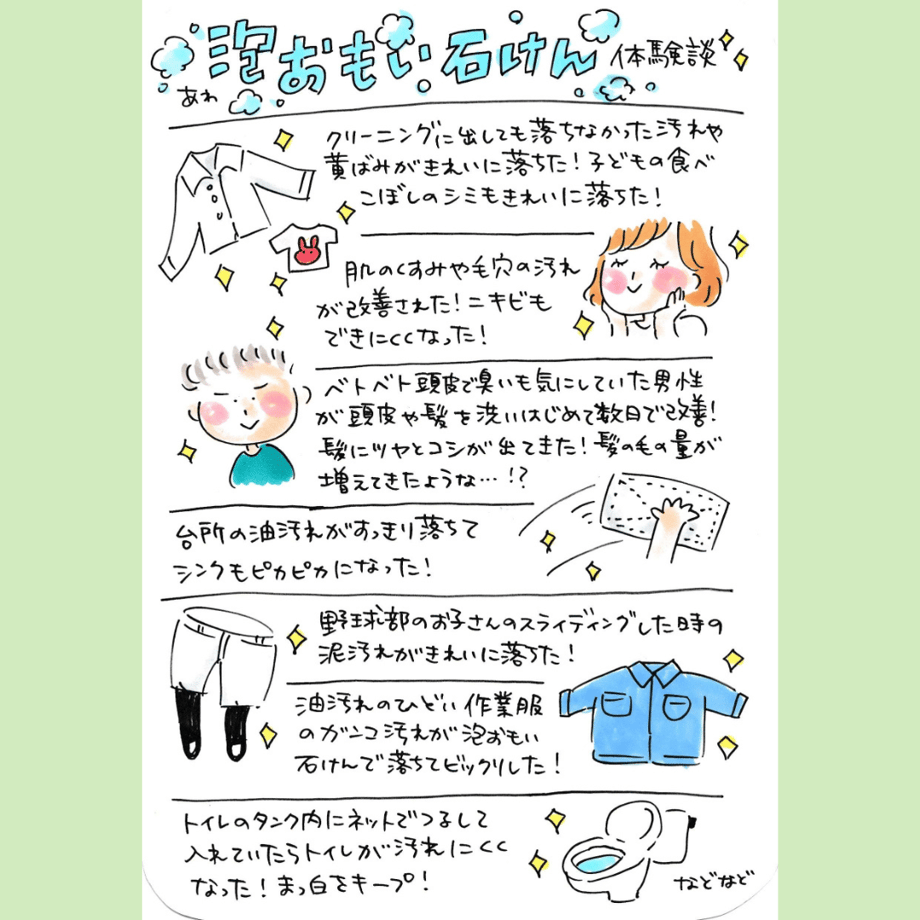 泡おもい石けん 体験談
あわ
クリーニングに出しても落ちなかった汚れや
黄ばみがきれいに落ちた！子どもの食べ
こぼしのシミもきれいに落ちた！
肌のくすみや毛穴の汚れ
が改善された！ニキビも
できにくくなった！
ベトベト頭皮で臭いも気にしていた男性
が頭皮や髪を洗いはじめて数日で改善！
髪にツヤとコシが出てきた！髪の毛の量が
増えてきたような…！？
台所の油汚れがすっきり落ちて
シンクもピカピカになった！
野球部のお子さんのスライディングした時の
泥汚れがきれいに落ちた！
油汚れのひどい作業服
のガンコ汚れが泡おもい
石けんで落ちてビックリした！
トイレのタンク内にネットでつるして
入れていたらトイレが汚れにくく
なった！まっ白をキープ！
などなど